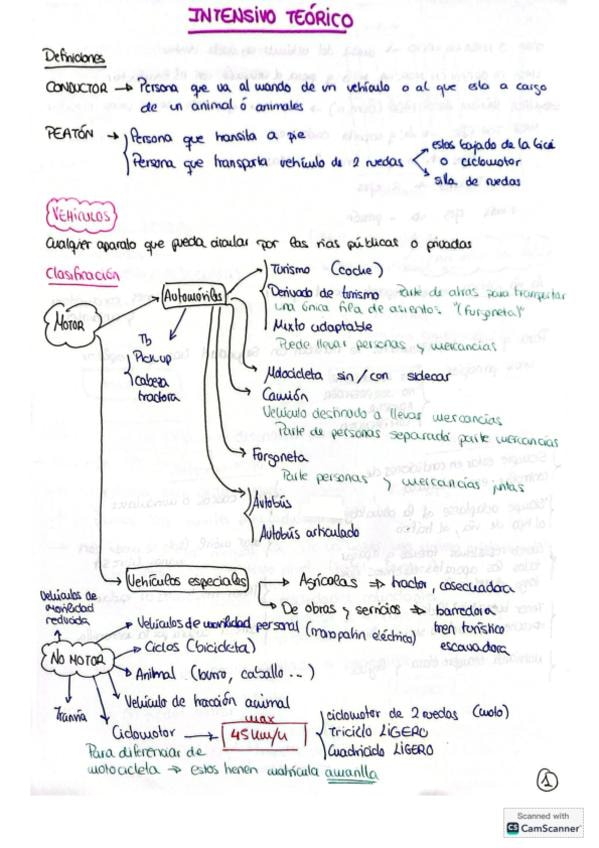 INTENSIVO TEÓRICO
Definiciones
CONDUCTOR → Persona que va al mando de un vehículo o al que esta a cargo
de un animal ó animales
PEATÓN → Persona que transita a pie
Persona que transporta vehículo de 2 ruedas
estas bajado de la bici
o ciclomotor
silla de ruedas
VEHÍCULOS
Cualquier aparato que pueda circular por las vías públicas o privadas
Clasificación
MOTOR
Automóviles
Tb
Pick up
cabeza
tractora
Turismo (coche)
Derivado de turismo Parte de atras para transportar
una única fila de asientos "(furgoneta)"
Mixto adaptable
Puede llevar personas y mercancías
Motocicleta sin/con sidecar
Camión
Vehículo destinado a llevar mercancías
Parte de personas separada parte mercancías
Furgoneta
Parte personas y mercancías juntas
Autobús
Autobús articulado
Vehículos especiales
Agrícolas ⇒ tractor, cosechadora
De obras y servicios ⇒ barredora
tren turístico
escavadora
NO MOTOR
Vehículos de
movilidad
reducida
Vehículos de movilidad personal (monopatin eléctrico)
Ciclos (bicicleta)
Animal (burro, caballo ...)
Vehículo de tracción animal
Tranvía
Ciclomotor → max 45 km/h
ciclomotor de 2 ruedas (moto)
Triciclo LIGERO
Cuadriciclo LIGERO
Para diferenciar de
motocicleta → estos tienen matrícula amarilla
1
Scanned with
CS CamScanner